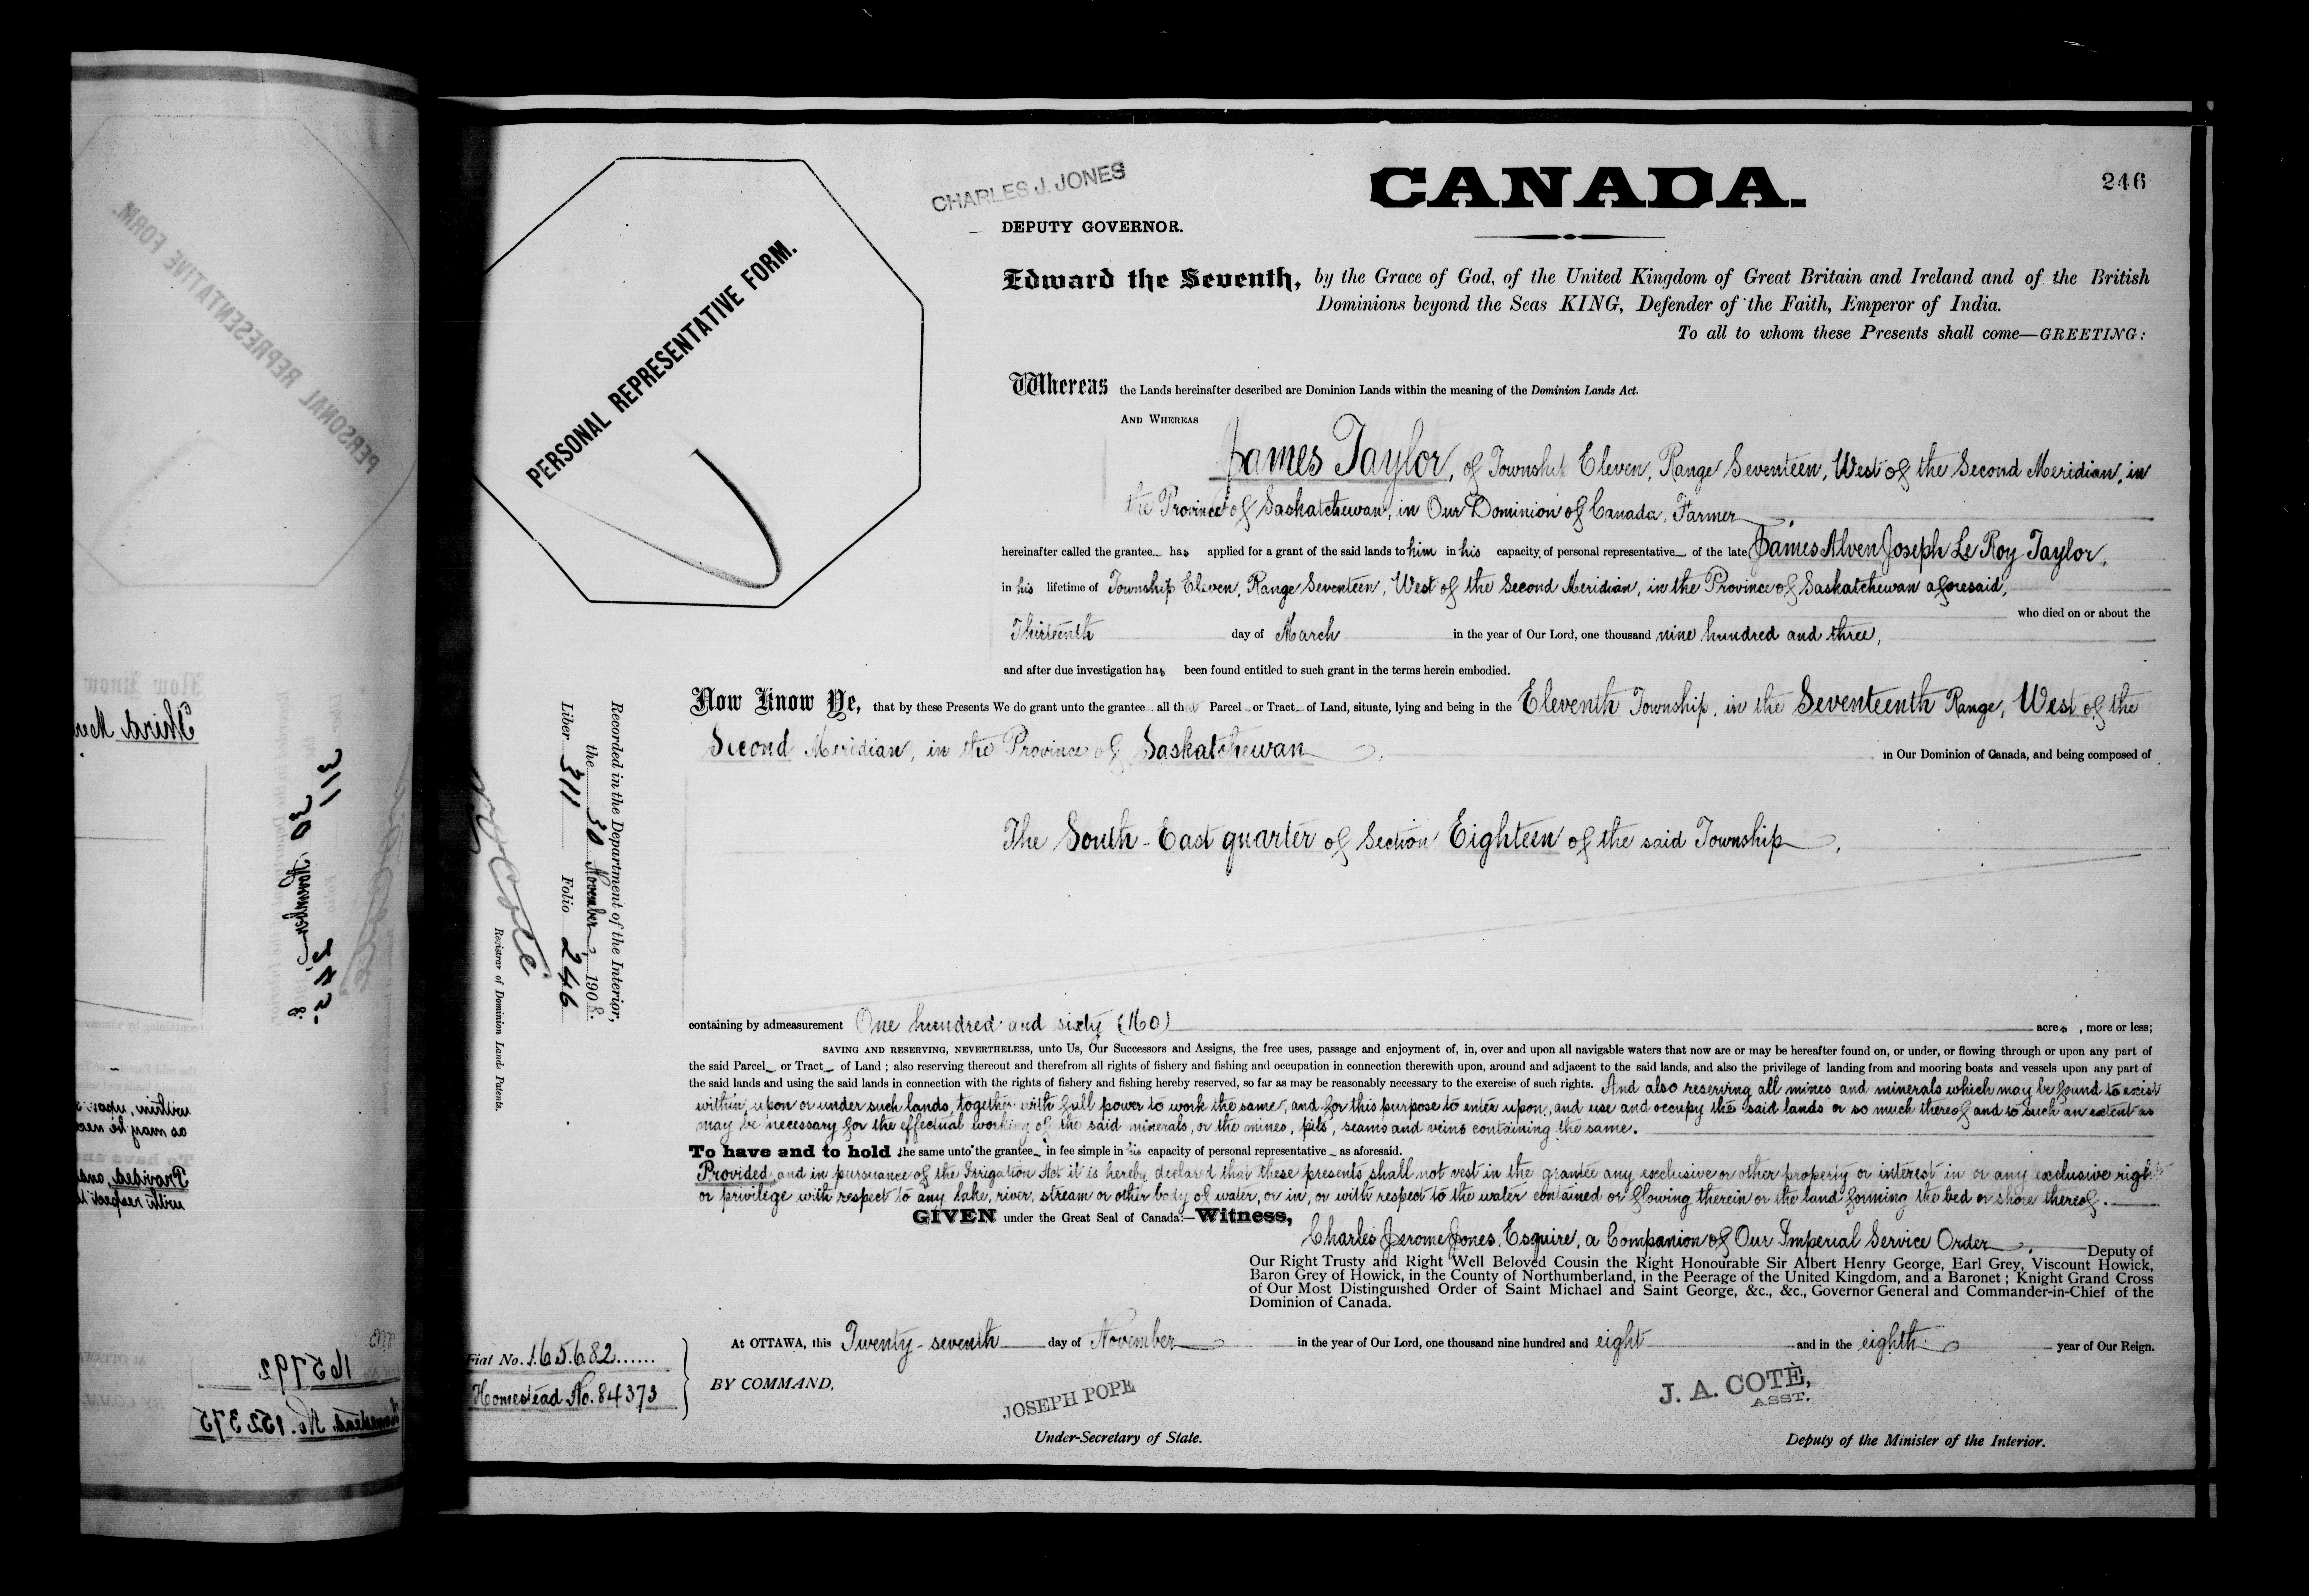 CHARLES J. JONES
CANADA.
246
DEPUTY GOVERNOR.
PERSONAL REPRESENTATIVE FORM.
Edward the Seventh, by the Grace of God, of the United Kingdom of Great Britain and Ireland and of the British
Dominions beyond the Seas KING, Defender of the Faith, Emperor of India.
To all to whom these Presents shall come—GREETING:
Whereas the Lands hereinafter described are Dominion Lands within the meaning of the Dominion Lands Act.
AND WHEREAS
James Taylor, of Township Eleven, Range Seventeen, West of the Second Meridian, in
the Province of Saskatchewan, in Our Dominion of Canada, Farmer,
hereinafter called the grantee has applied for a grant of the said lands to him in his capacity of personal representative of the late James Alven Joseph Le Roy Taylor,
in his lifetime of Township Eleven, Range Seventeen, West of the Second Meridian, in the Province of Saskatchewan aforesaid,
who died on or about the
Thirteenth day of March in the year of Our Lord, one thousand nine hundred and three,
and after due investigation has been found entitled to such grant in the terms herein embodied.
Now Know Ye, that by these Presents We do grant unto the grantee all that Parcel or Tract of Land, situate, lying and being in the Eleventh Township, in the Seventeenth Range, West of the
Second Meridian, in the Province of Saskatchewan, in Our Dominion of Canada, and being composed of
The South-East quarter of Section Eighteen of the said Township,
containing by admeasurement One hundred and sixty (160) acres, more or less;
SAVING AND RESERVING, NEVERTHELESS, unto Us, Our Successors and Assigns, the free uses, passage and enjoyment of, in, over and upon all navigable waters that now are or may be hereafter found on, or under, or flowing through or upon any part of
the said Parcel or Tract of Land; also reserving thereout and therefrom all rights of fishery and fishing and occupation in connection therewith upon, around and adjacent to the said lands, and also the privilege of landing from and mooring boats and vessels upon any part of
the said lands and using the said lands in connection with the rights of fishery and fishing hereby reserved, so far as may be reasonably necessary to the exercise of such rights. And also reserving all mines and minerals which may be found to exist
within, upon or under such lands, together with full power to work the same, and for this purpose to enter upon, and use and occupy the said lands or so much thereof and to such an extent as
may be necessary for the effectual working of the said minerals, or the mines, pits, seams and veins containing the same.
To have and to hold the same unto the grantee in fee simple in his capacity of personal representative as aforesaid.
Provided and in pursuance of the Irrigation Act it is hereby declared that these presents shall not vest in the grantee any exclusive or other property or interest in or any exclusive right
or privilege with respect to any lake, river, stream or other body of water, or in, or with respect to the water contained or flowing therein or the land forming the bed or shore thereof.
GIVEN under the Great Seal of Canada:—Witness,
Charles Jerome Jones, Esquire, a Companion of Our Imperial Service Order, Deputy of
Our Right Trusty and Right Well Beloved Cousin the Right Honourable Sir Albert Henry George, Earl Grey, Viscount Howick,
Baron Grey of Howick, in the County of Northumberland, in the Peerage of the United Kingdom, and a Baronet; Knight Grand Cross
of Our Most Distinguished Order of Saint Michael and Saint George, &c., &c., Governor General and Commander-in-Chief of the
Dominion of Canada.
At OTTAWA, this Twenty-seventh day of November in the year of Our Lord, one thousand nine hundred and eight and in the eighth year of Our Reign.
BY COMMAND,
JOSEPH POPE
Under-Secretary of State.
J. A. COTÈ,
ASST.
Deputy of the Minister of the Interior.
Fiat No. 165682......
Homestead No. 84373
Recorded in the Department of the Interior,
the 30 November, 1908.
Liber 311 Folio 246
Registrar of Dominion Lands Patents.
PERSONAL REPRESENTATIVE FORM.
Third
311
30 November
245
165792
Homestead No. 152375
within, upon
as may be nec
Provided, and
with respect t